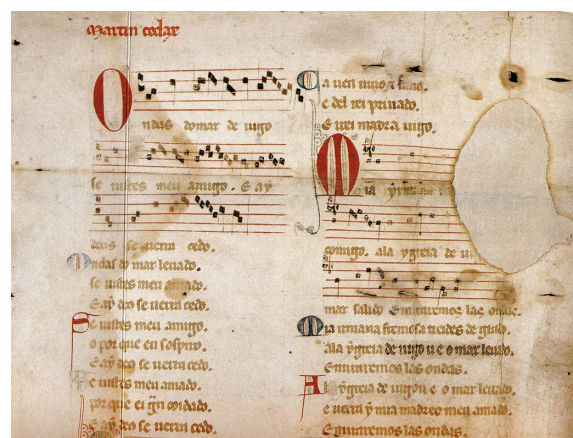 Martin codax
Ondas do mar de uigo
se uistes meu amigo. E ay
deus se uerra cedo.
Ondas do mar leuado.
se uistes meu amado.
E ay deo se uerra cedo.
Se uistes meu amigo.
o por que eu sospiro.
E ay deo se uerra cedo.
Se uistes meu amado.
por que ei gran coidado.
E ay deo se uerra cedo.
Ca uen uiuo
e del rei priuado.
E irei madr a uigo.
Mia yrmana
comigo. ala ygreia de
mar salido E miraremos las ondas.
Mia irmana fremosa treides de grado.
ala ygreia de uigo u e o mar leuado.
E miraremos las ondas.
A la ygreia de uigo u e o mar leuado.
e uerra y mia madre e o meu amado.
E miraremos las ondas.